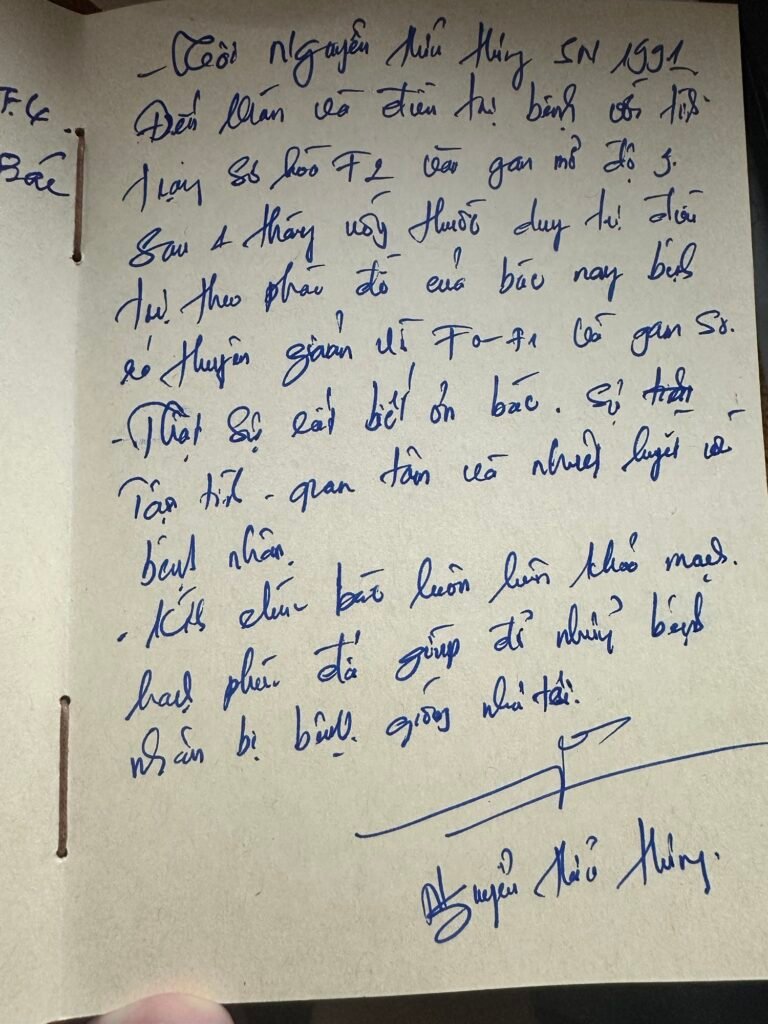 F.4
Bác
- Tôi Nguyễn Hữu Hưng SN 1991
Đến khám và điều trị bệnh với tình
trạng Sơ hóa F2 và gan mỡ độ 3.
Sau 1 tháng uống thuốc duy trì điều
trị theo phác đồ của bác nay bệnh
có thuyên giảm về F0-F1 và gan Sơ.
- Thật Sự rất biết ơn bác. Sự
Tận tình - quan tâm và nhiệt huyết với
bệnh nhân.
- Kính chúc bác luôn luôn khỏe mạnh.
hạnh phúc để giúp đỡ những bệnh
nhân bị bệnh giống như tôi.
Nguyễn Hữu Hưng.